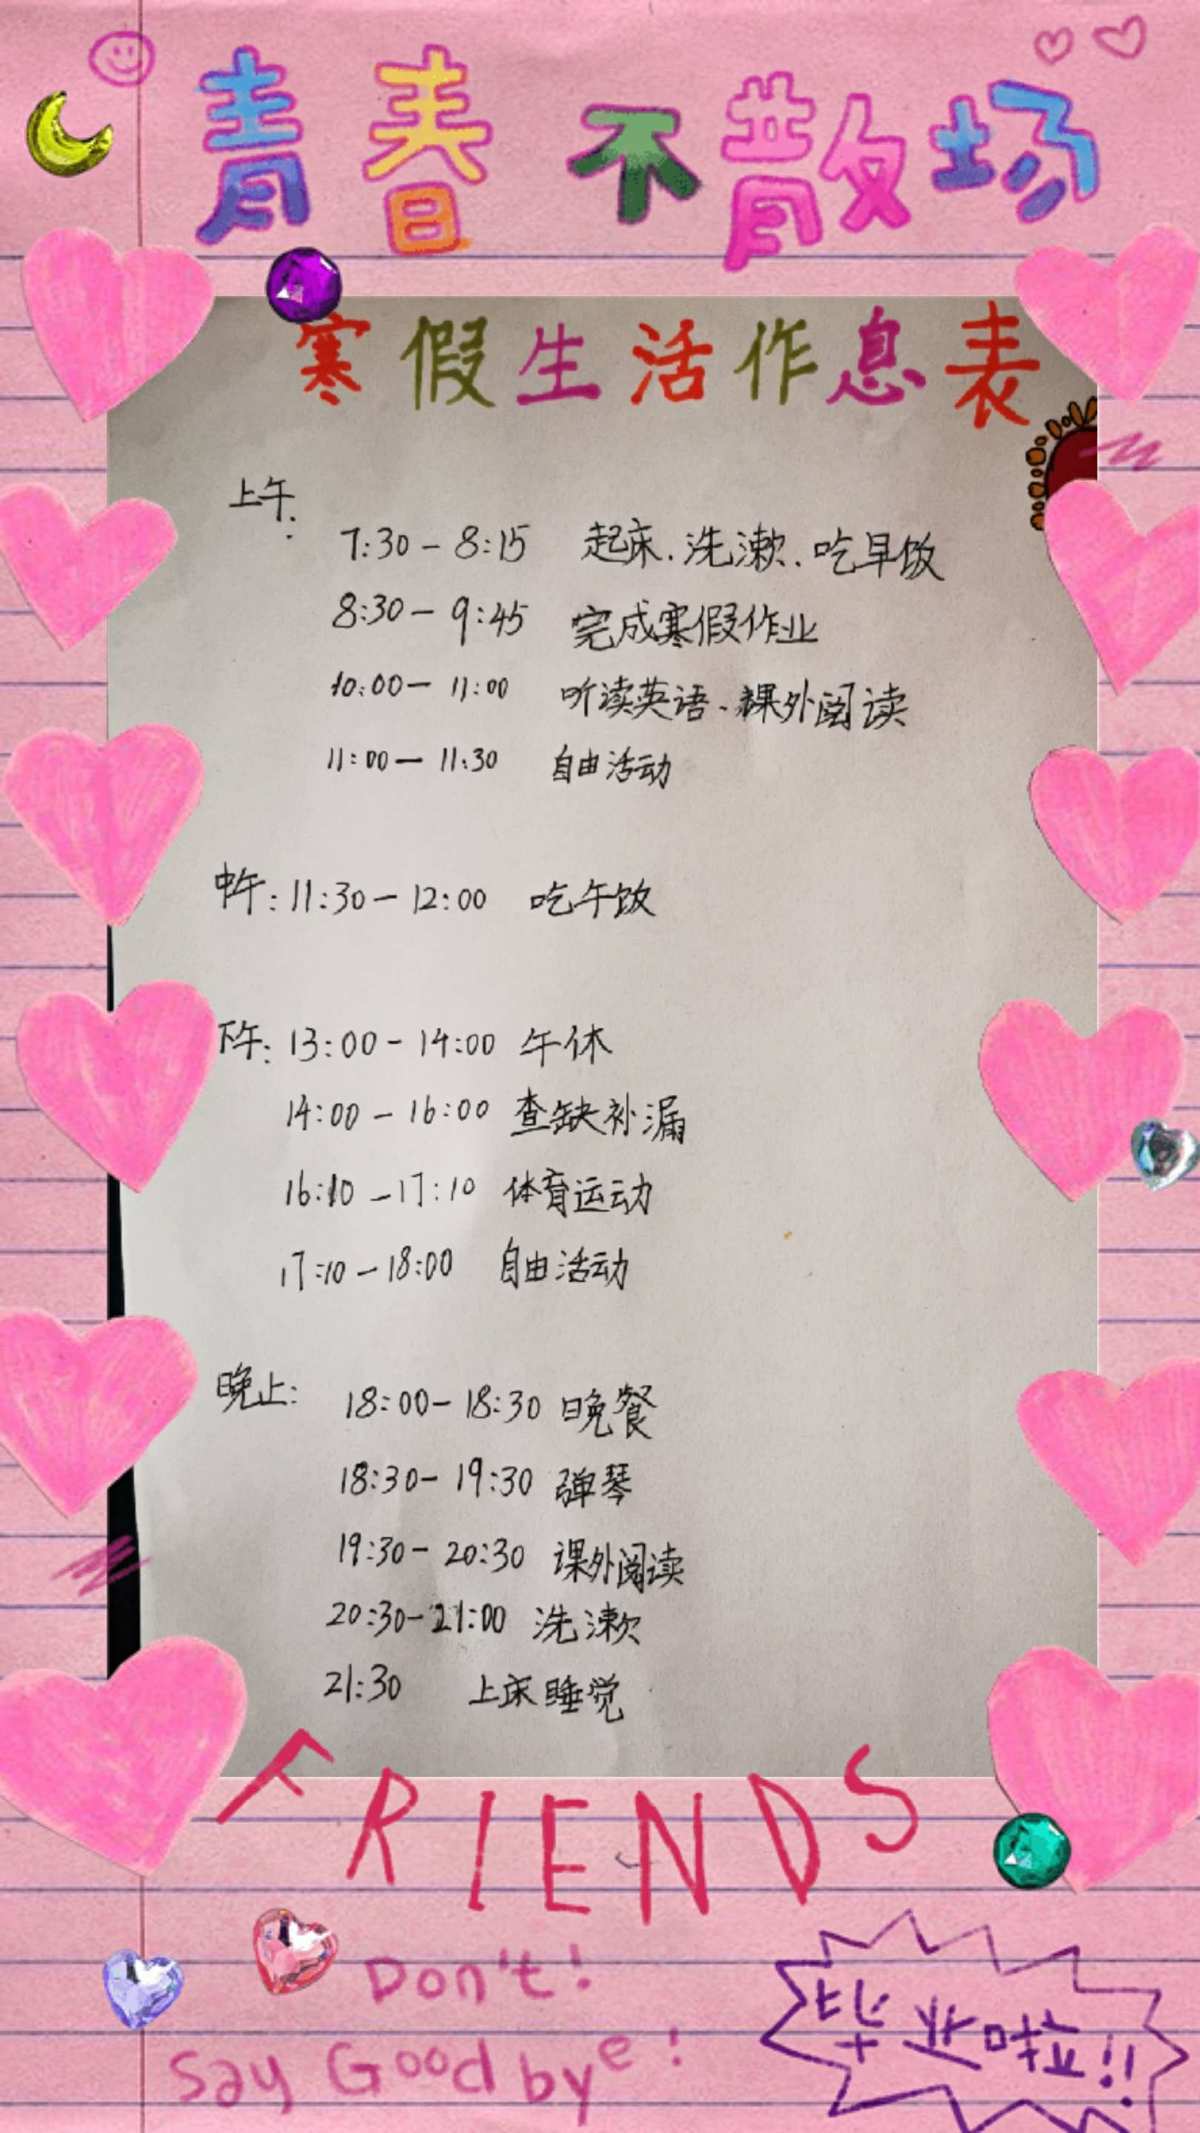 青春不散场
寒假生活作息表
上午:
7:30-8:15 起床、洗漱、吃早饭
8:30-9:45 完成寒假作业
10:00-11:00 听读英语、课外阅读
11:00-11:30 自由活动
中午:11:30-12:00 吃午饭
下午:13:00-14:00 午休
14:00-16:00 查缺补漏
16:10-17:10 体育运动
17:10-18:00 自由活动
晚上:
18:00-18:30 晚餐
18:30-19:30 弹琴
19:30-20:30 课外阅读
20:30-21:00 洗漱
21:30 上床睡觉
FRIENDS
Don't!
Say Good bye!
毕业啦!!